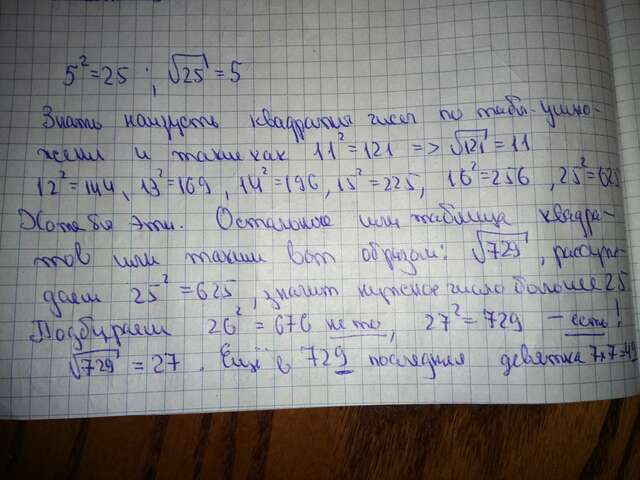 5² = 25 ; √25 = 5
Знать наизусть квадраты чисел по табл. умно-
жения и такие как 11² = 121 => √121 = 11
12² = 144, 13² = 169, 14² = 196, 15² = 225, 16² = 256, 25² = 625
Хотя бы эти. Остальное или таблица квадра-
тов или таким вот образом: √729, рассуж-
даем 25² = 625, значит нужное число больше 25
Подбираем 26² = 676 не то, 27² = 729 – есть!
√729 = 27. Ещё в 729 последняя девятка 7×7=49